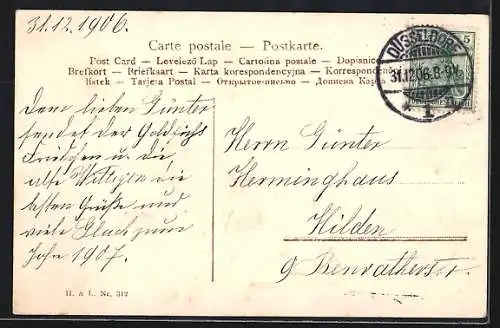 31.12.1906.
Carte postale — Postkarte.
Post Card — Levelező Lap — Cartolina postale — Dopisnice
Brefkort — Briefkaart — Karta korespondencyjna — Korrespondenč
Listek — Tarjeta Postal — Открытое письмо — Дописна Карта
DÜSSELDORF
31.12.06.8-9N.
* 1
5
Dem lieben Günter
sendet der Goldfuchs
Fritzchen u. die
alte die
besten Grüße und
viele Glück zum
Jahre 1907.
Herrn Günter
Herminghaus
Hilden
9 Benratherstr.
H. & L. Nr. 312